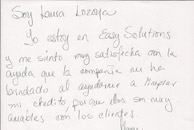 Soy Laura Lozoya
Yo estoy en Easy Solutions
y me siento muy satisfecha con la
ayuda que la compañia me ha
brindado al ayudarme a limpiar
mi credito, porque dos son muy
amables con los clientes.